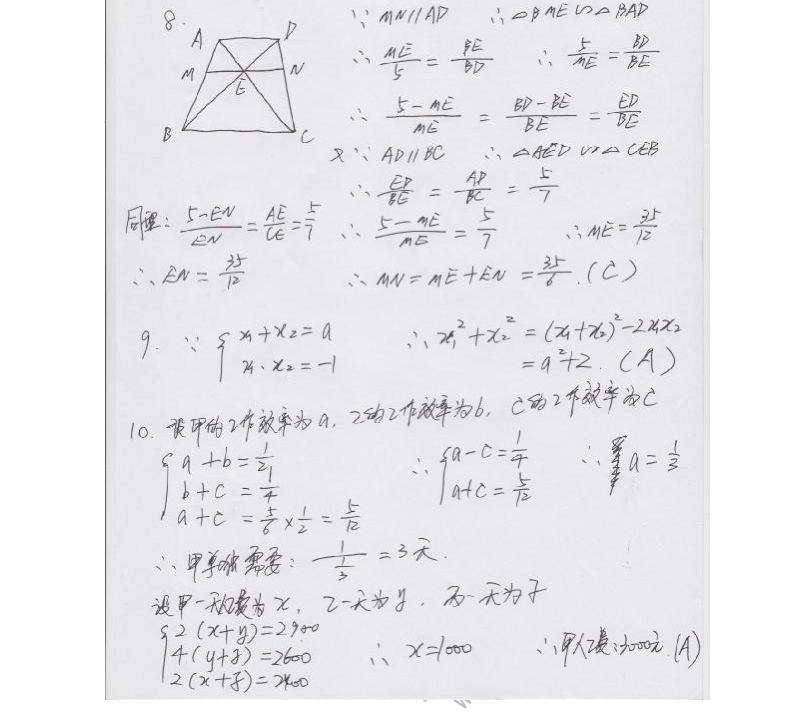 8.
A D
M N
E
B C
∵ MN//AD ∴ △BME∽△BAD
∴ ME/5 = BE/BD ∴ 5/ME = BD/BE
∴ (5-ME)/ME = (BD-BE)/BE = ED/BE
又∵ AD//BC ∴ △AED∽△CEB
∴ ED/BE = AD/BC = 5/7
同理: (5-EN)/EN = AE/CE = 5/7 ∴ (5-ME)/ME = 5/7 ∴ ME = 35/12
∴ EN = 35/12 ∴ MN = ME + EN = 35/6. (C)
9. ∵ { x₁ + x₂ = a ∴ x₁² + x₂² = (x₁+x₂)² - 2x₁x₂
x₁·x₂ = -1 = a² + 2. (A)
10. 设甲的工作效率为a, 乙的工作效率为b, C的工作效率为C
{ a + b = 1/2 ∴ { a - c = 1/4 ∴ a = 1/3
b + c = 1/4 a + c = 5/12
a + c = 5/6 × 1/2 = 5/12
∴ 甲单独需要: 1/(1/3) = 3天.
设甲一天人工费为x, 乙一天为y, 丙一天为z
{ 2(x+y) = 2900
4(y+z) = 2600 ∴ x = 1000 ∴ 甲人工费:3000元. (A)
2(x+z) = 2400